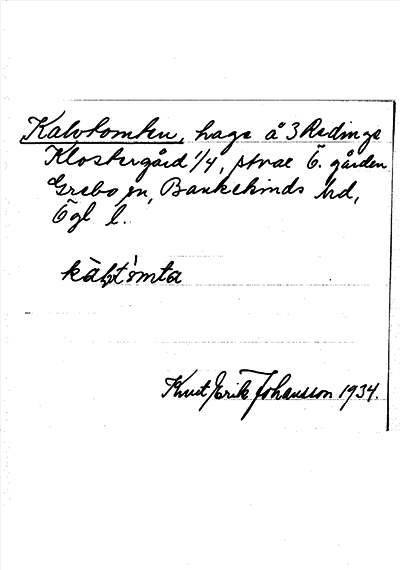 Kalvtomten, hage å 3 Redinge
Klostergård 1/4, strax Ö. gården
Grebo sn, Bankekinds hd,
Ögl l.
Knut Erik Johansson 1934.